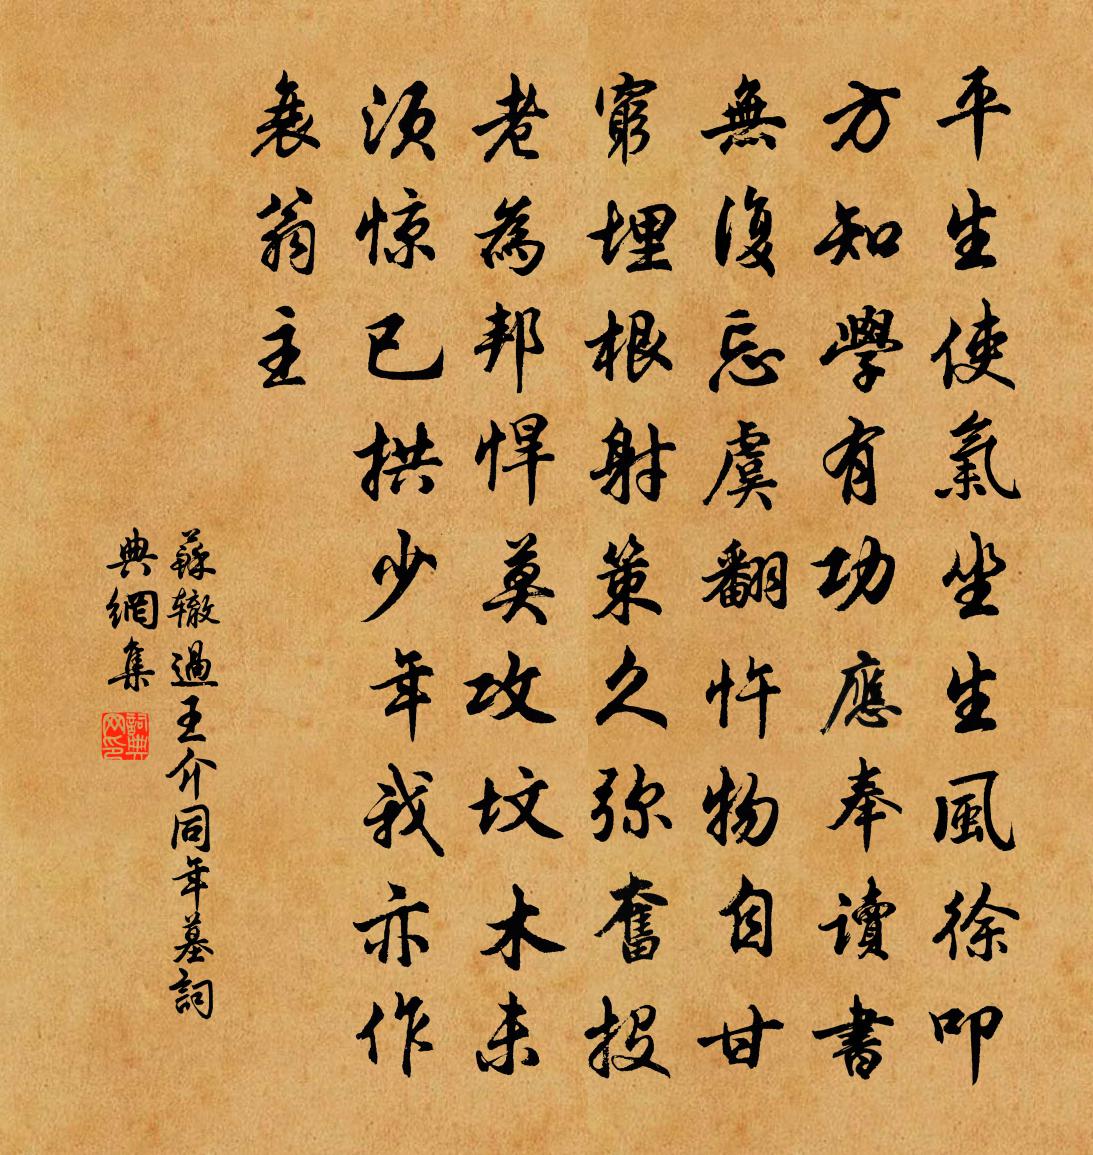 平生使氣坐生風徐叩
方知學有功應奉讀書
無復忘虞翻忤物自甘
窮埋根射策久弥奮投
老為邦悍莫攻坟木未
須惊已拱少年我亦作
衰翁主
蘇辙過王介同年墓詞
典網集
詞典網印